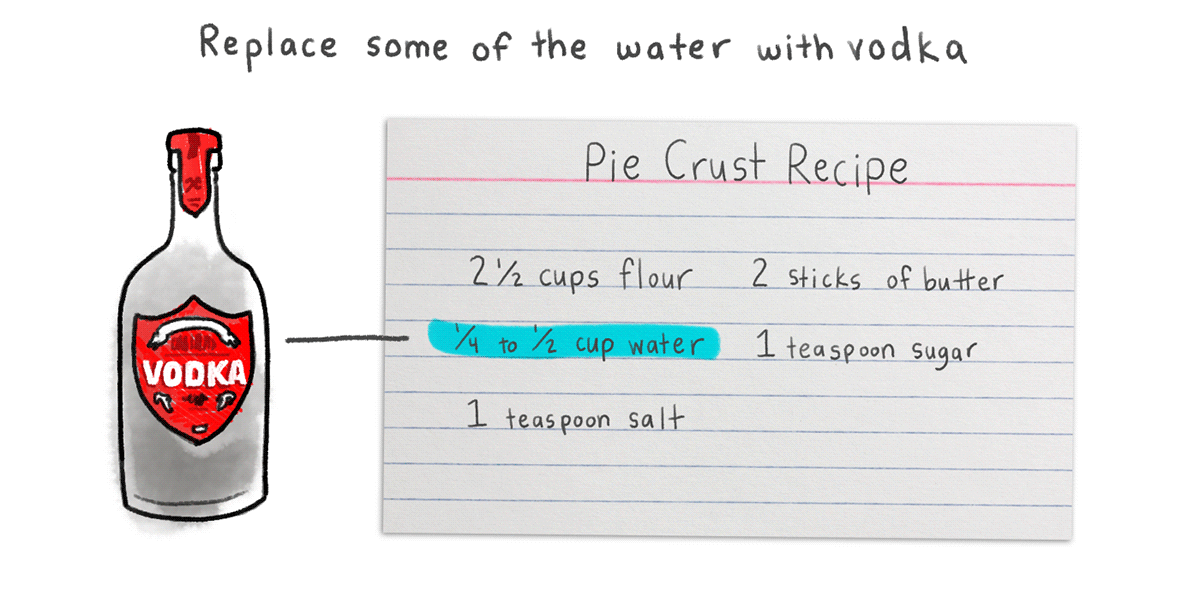 Replace some of the water with vodka
VODKA
Pie Crust Recipe
2 ½ cups flour
2 sticks of butter
¼ to ½ cup water
1 teaspoon sugar
1 teaspoon salt